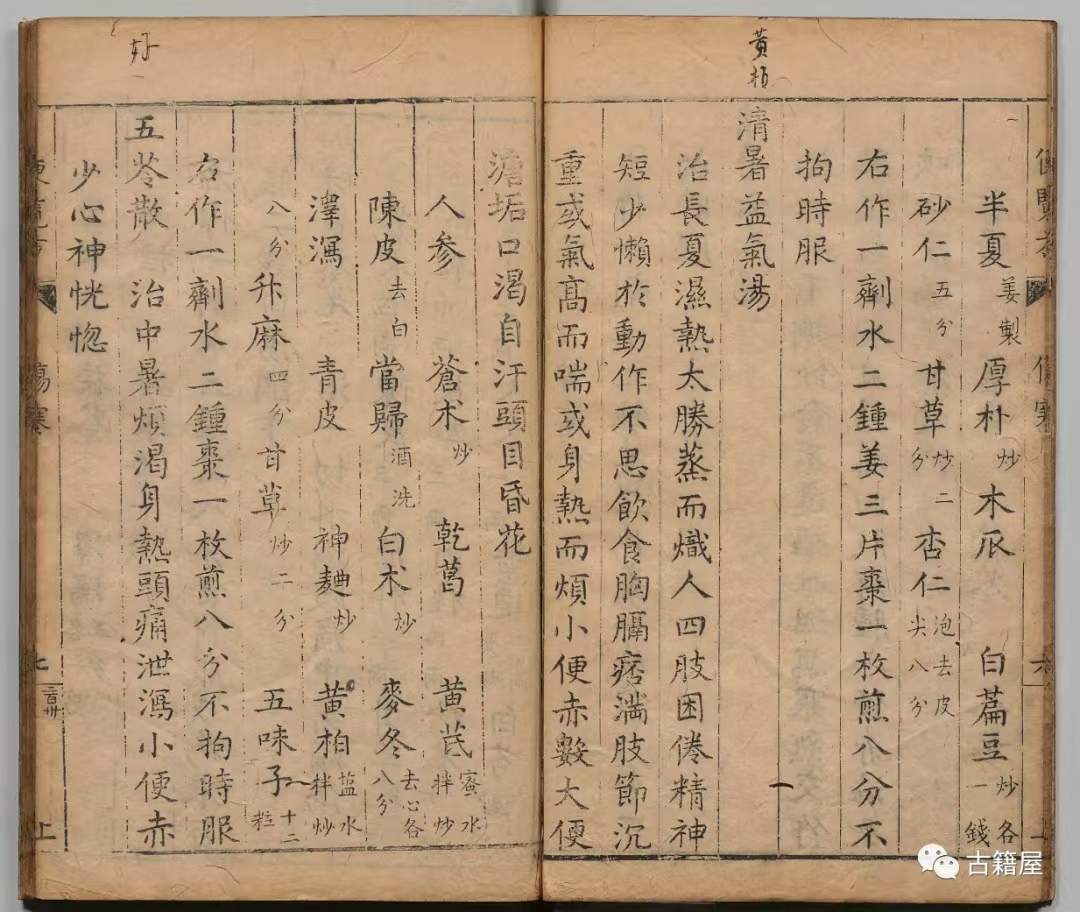 黃栢
半夏姜製 厚朴炒 木瓜 白扁豆炒各一錢
砂仁五分 甘草炒二分 杏仁泡去皮尖八分
右作一劑水二鍾姜三片棗一枚煎八分不
拘時服
清暑益氣湯
治長夏濕熱太勝蒸而熾人四肢困倦精神
短少懶於動作不思飲食胸膈痞滿肢節沉
重或氣高而喘或身熱而煩小便赤數大便
好
澹垢口渴自汗頭目昏花
人參 蒼术炒 乾葛 黃芪蜜水拌炒
陳皮去白 當歸酒洗 白术炒 麥冬去心各八分
澤瀉 青皮 神麯炒 黃柏盐水拌炒
八分升麻四分甘草炒二分 五味子十二粒
右作一劑水二鍾棗一枚煎八分不拘時服
五苓散 治中暑煩渴身熱頭痛泄瀉小便赤
少心神恍惚
傷寒
上
古籍屋